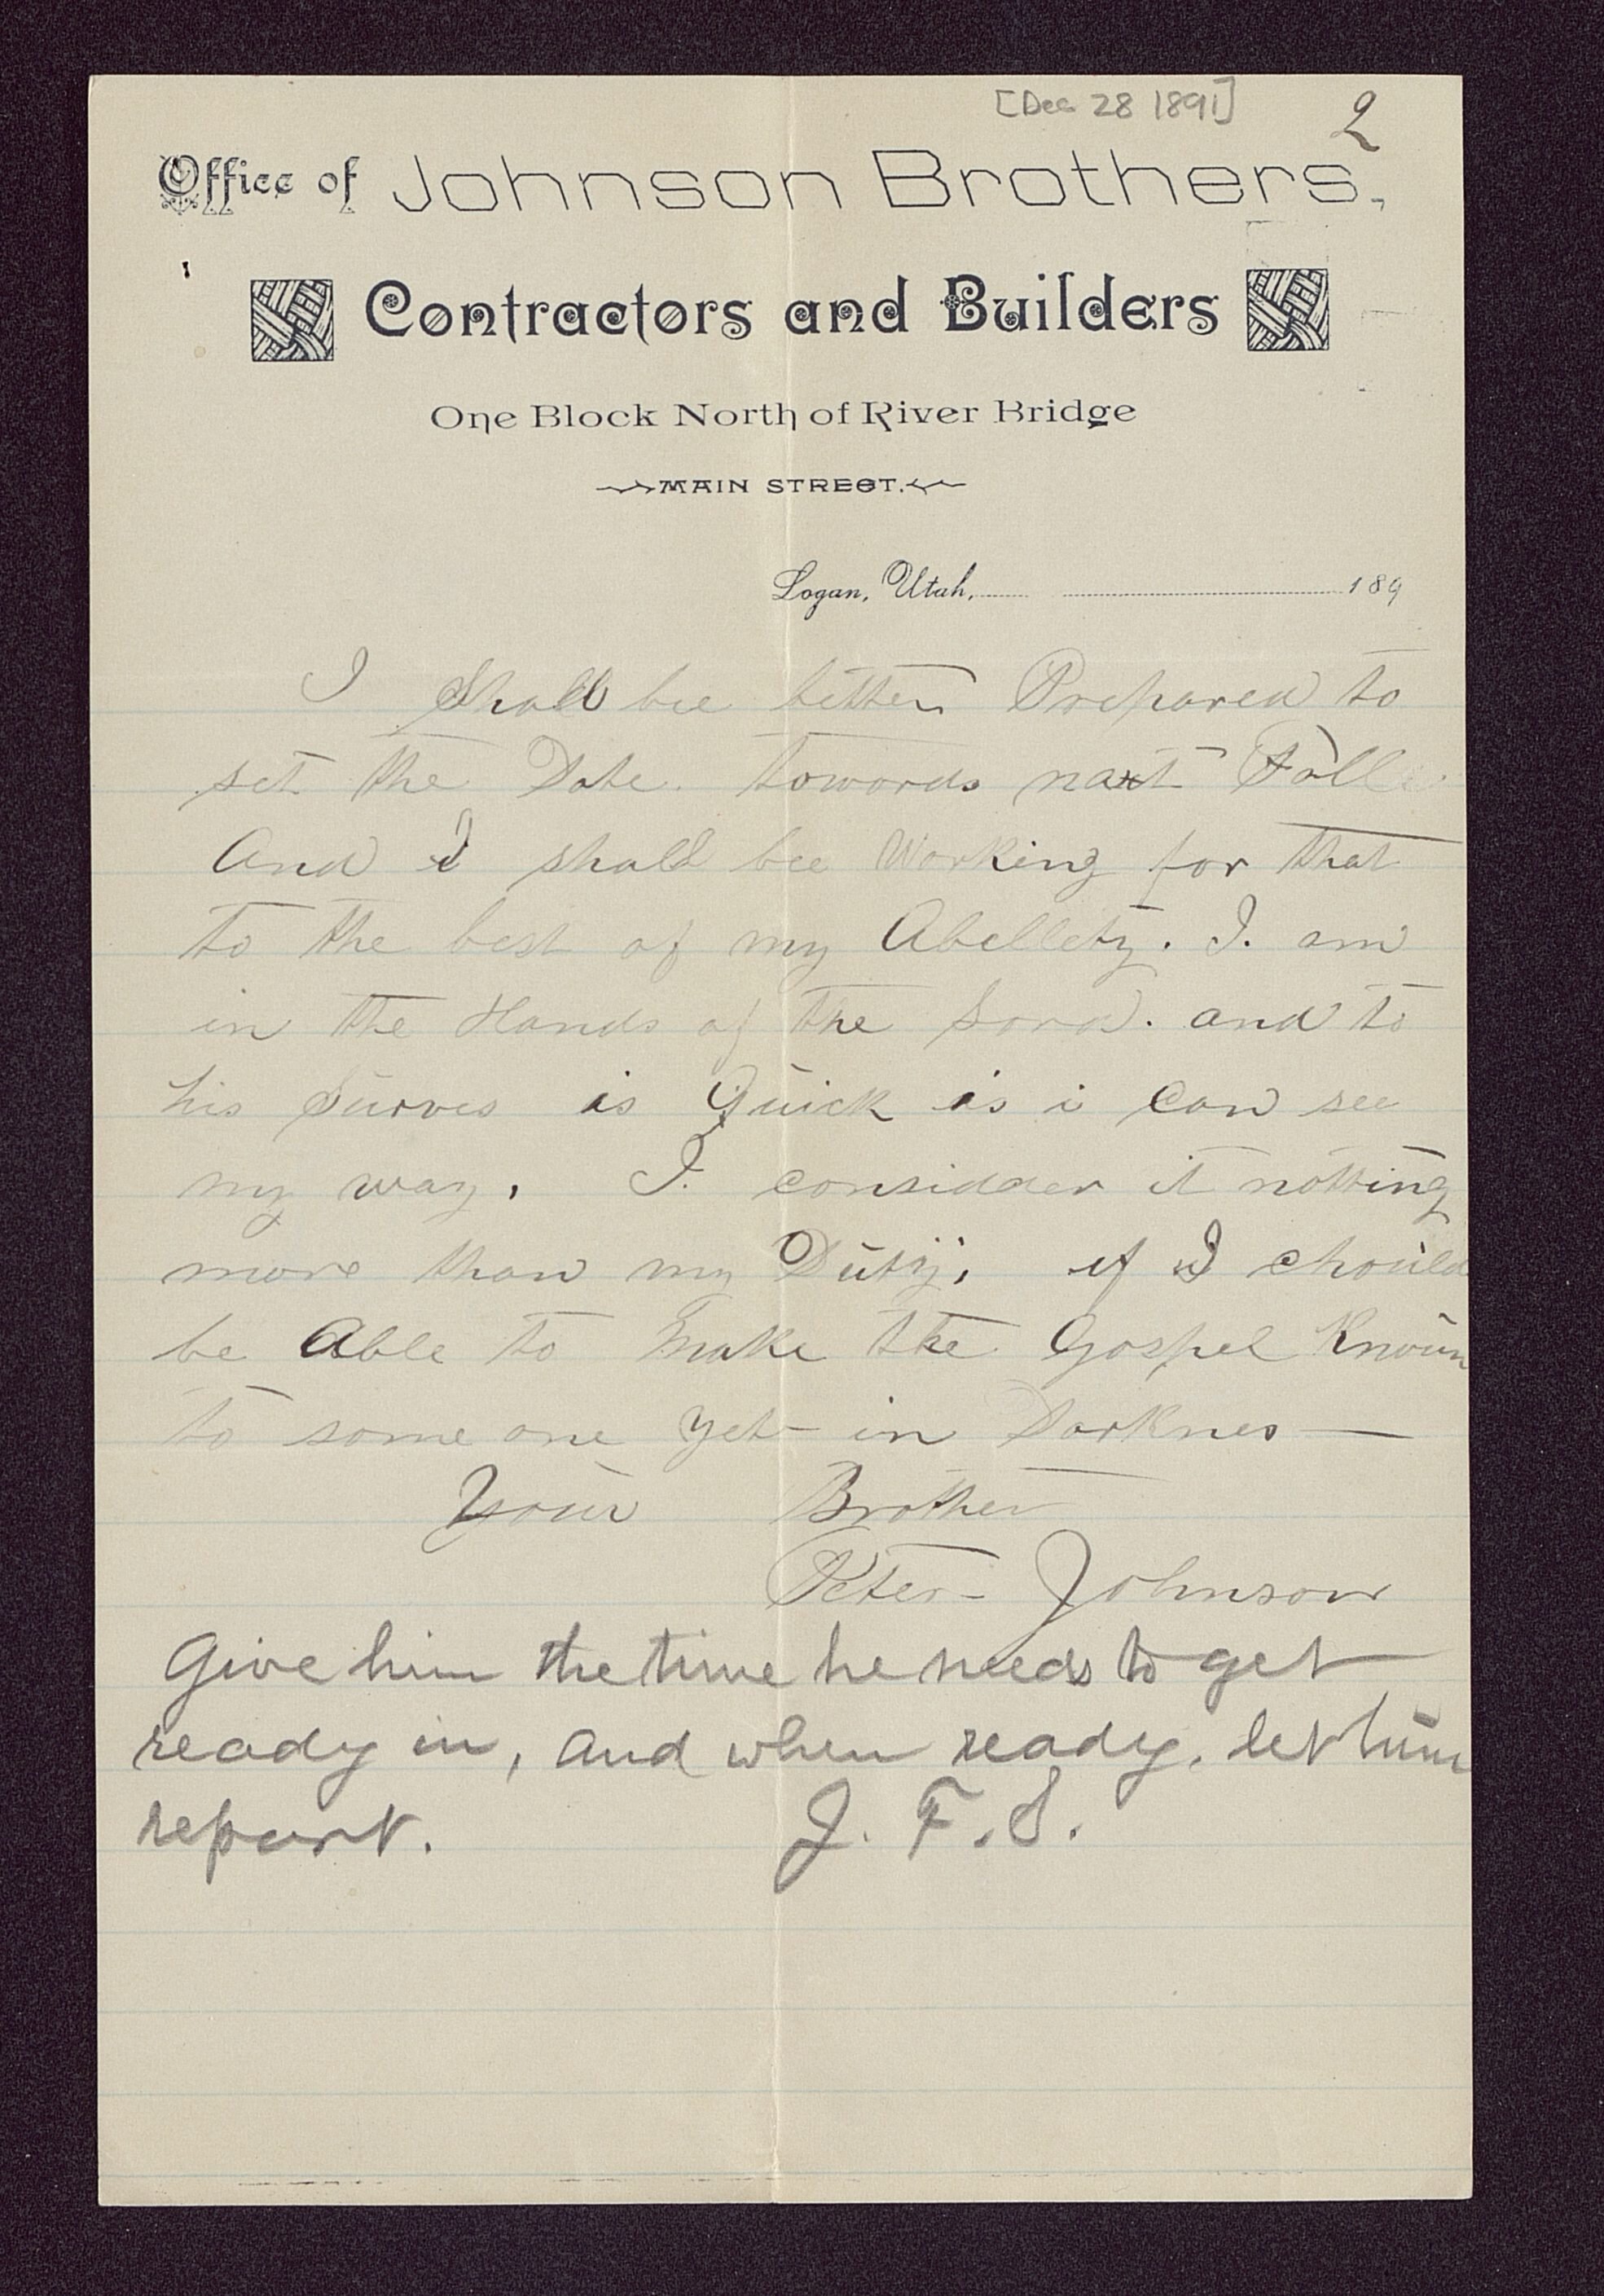 [Dec 28 1891]
2
Office of Johnson Brothers,
Contractors and Builders
One Block North of River Bridge
MAIN STREET.
Logan, Utah, 189
I Shall bee better Prepared to
set the Date towards naxt Fall
And I shall bee Working for that
to the best of my Abellety. I. am
in the Hands of the Lord. and to
his Surves is Quick is i Can see
my way. I. considder it nothing
more than my Duty, if I chould
be Able to make the Gospel Known
to some one yet in Darknes —
Your Brother
Peter Johnson
Give him the time he needs to get
ready in, and when ready, let him
report. J. F. S.